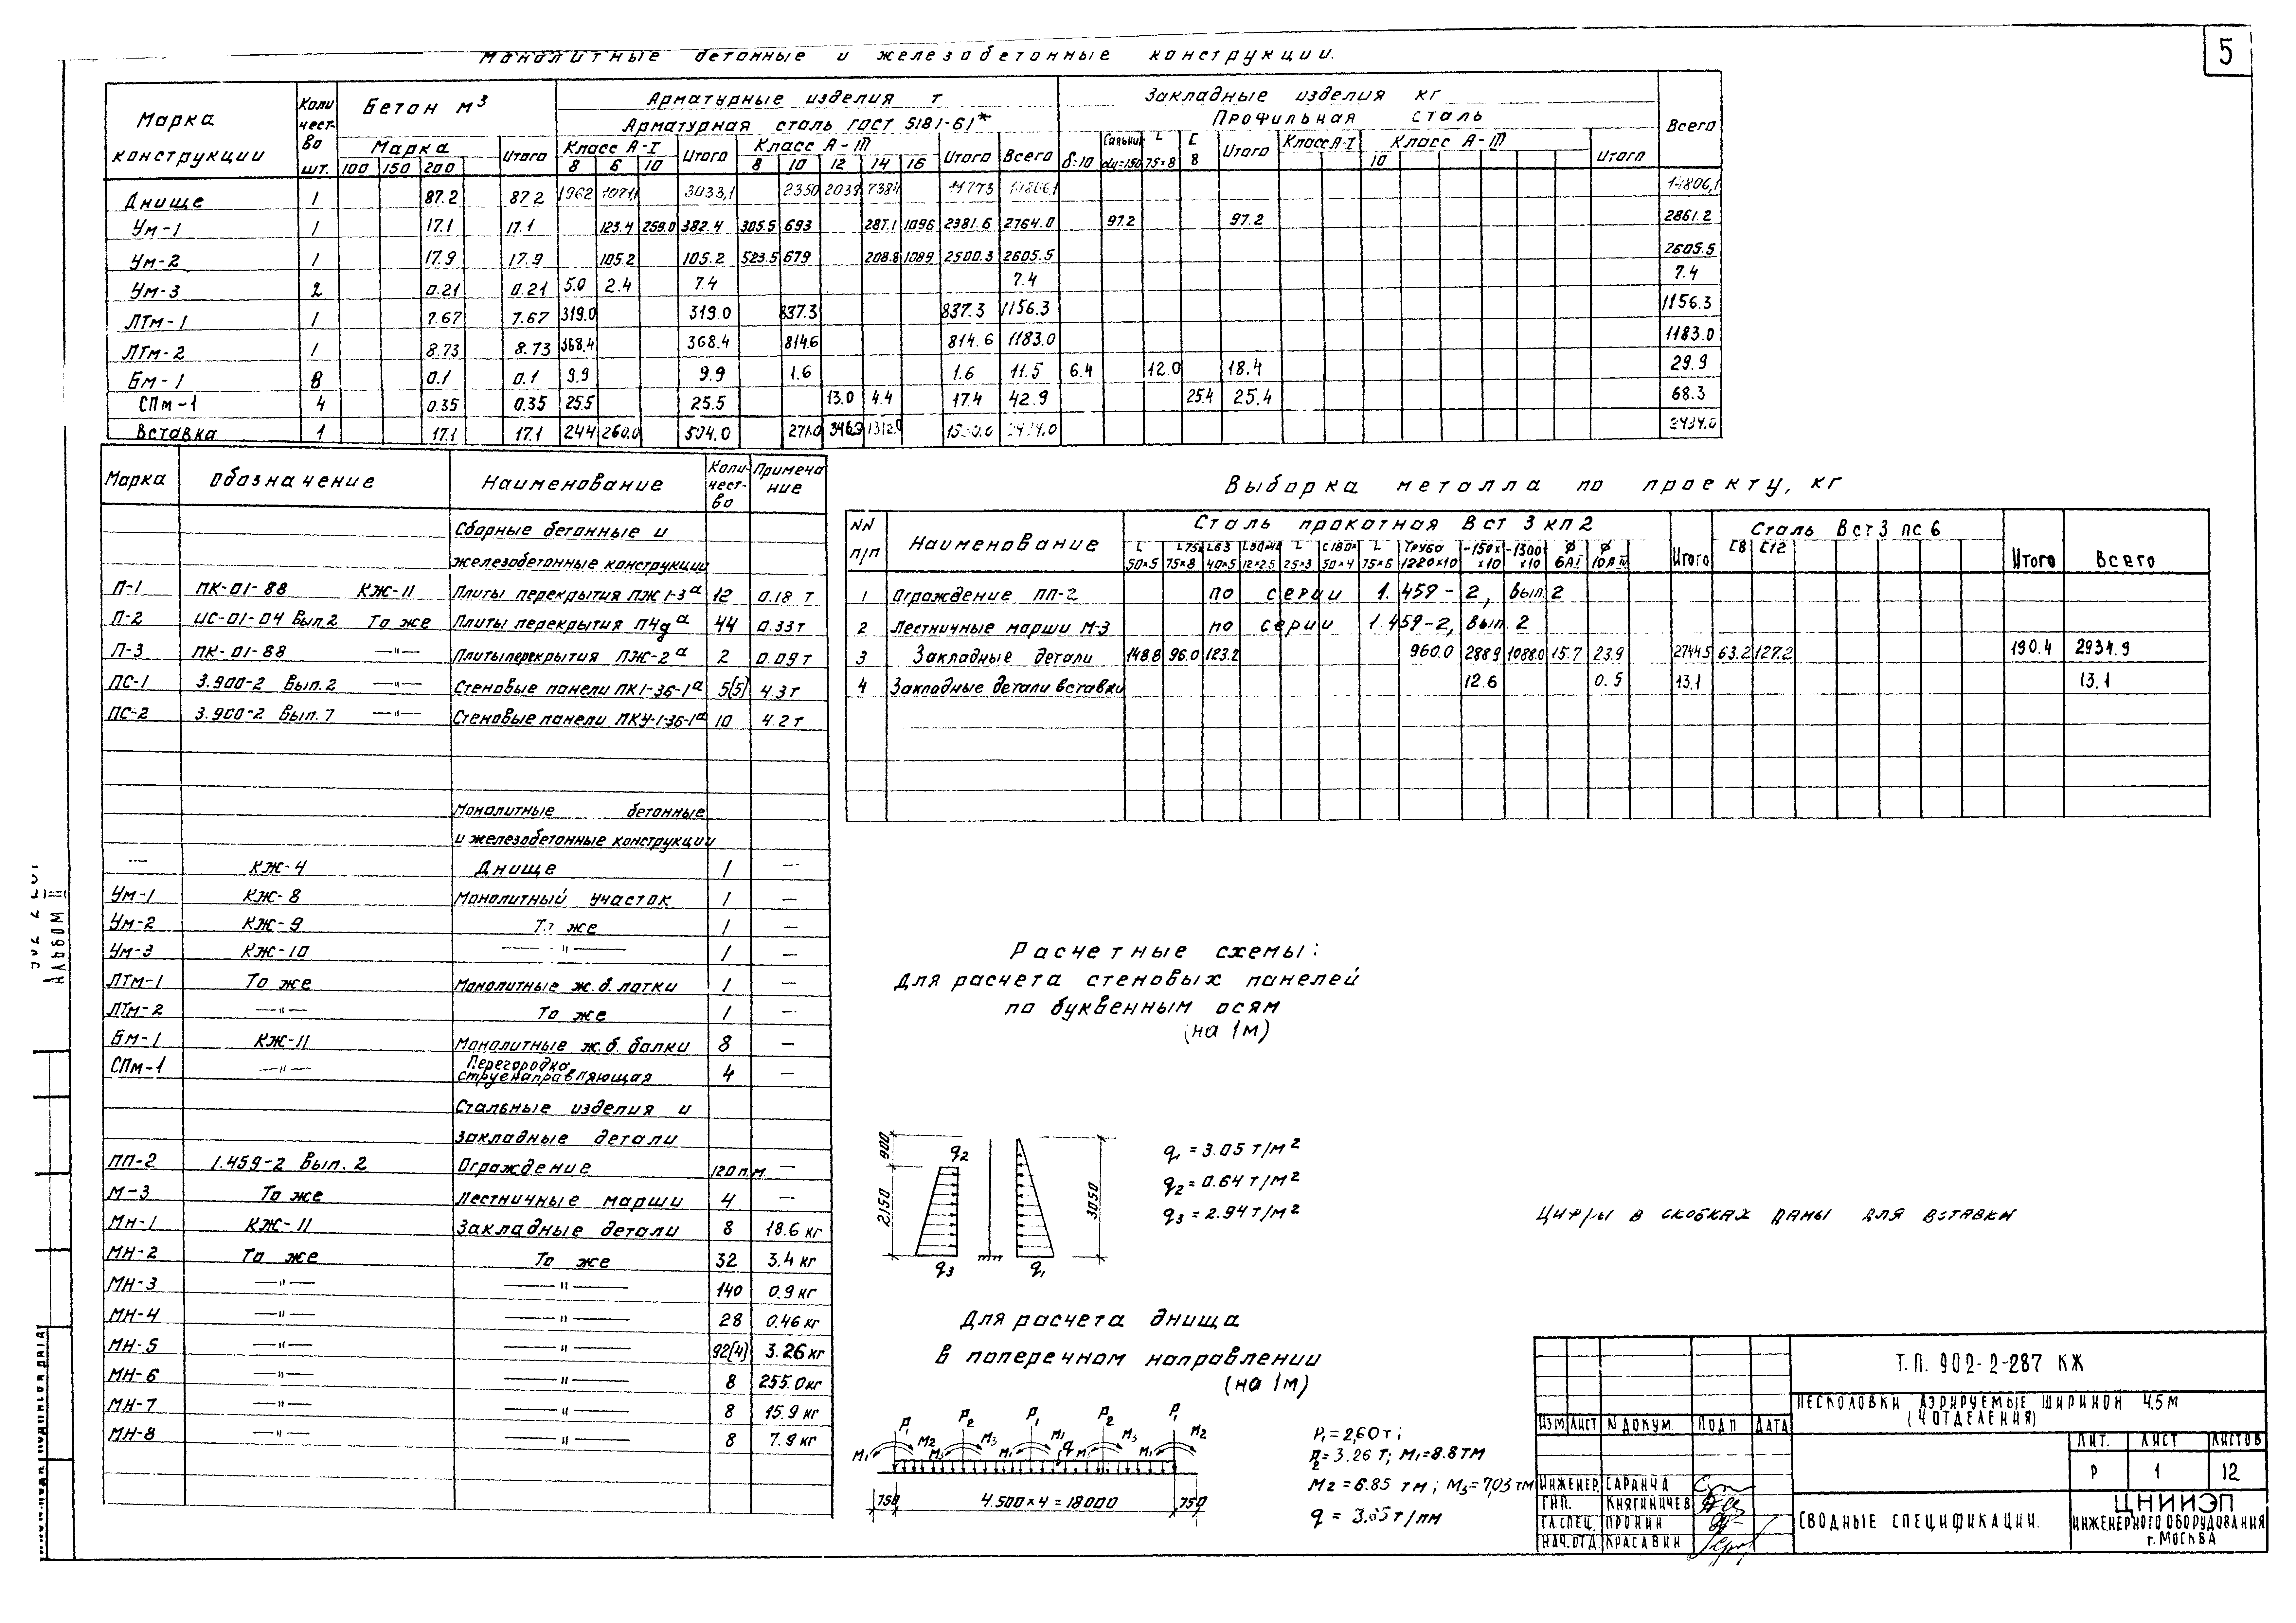 5
Монолитные бетонные и железобетонные конструкции.
Марка конструкции | Количество шт. | Бетон м³ | Арматурные изделия т | Закладные изделия кг | Всего
Арматурная сталь ГОСТ 5181-61* | Профильная сталь
Марка | Итого | Класс А-I | Итого | Класс А-III | Итого | Всего | δ=10 | Сальник dy=150 | L 75×8 | [ 8 | Итого | Класс А-I | Класс А-III | Итого
100 | 150 | 200 | 8 | 6 | 10 | 8 | 10 | 12 | 14 | 16 | 10
Днище | 1 | 87.2 | 87.2 | 1962 | 1071,1 | 3033,1 | 2350 | 2039 | 7384 | 11773 | 14806,1 | 14806,1
Ум-1 | 1 | 17.1 | 17.1 | 123.4 | 259.0 | 382.4 | 305.5 | 693 | 287.1 | 1096 | 2381.6 | 2764.0 | 97.2 | 97.2 | 2861.2
Ум-2 | 1 | 17.9 | 17.9 | 105.2 | 105.2 | 523.5 | 679 | 208.8 | 1089 | 2500.3 | 2605.5 | 2605.5
Ум-3 | 2 | 0.21 | 0.21 | 5.0 | 2.4 | 7.4 | 7.4 | 7.4
ЛТм-1 | 1 | 7.67 | 7.67 | 319.0 | 319.0 | 837.3 | 837.3 | 1156.3 | 1156.3
ЛТм-2 | 1 | 8.73 | 8.73 | 368.4 | 368.4 | 814.6 | 814.6 | 1183.0 | 1183.0
Бм-1 | 8 | 0.1 | 0.1 | 9.9 | 9.9 | 1.6 | 1.6 | 11.5 | 6.4 | 12.0 | 18.4 | 29.9
СПм-1 | 4 | 0.35 | 0.35 | 25.5 | 25.5 | 13.0 | 4.4 | 17.4 | 42.9 | 25.4 | 25.4 | 68.3
Вставка | 1 | 17.1 | 17.1 | 244 | 260.0 | 504.0 | 271.0 | 346.9 | 1312.0 | 2434.0
Марка | Обозначение | Наименование | Количество | Примечание
Сборные бетонные и
железобетонные конструкции
П-1 | ПК-01-88 КЖ-11 | Плиты перекрытия ПЖ1-3ᵃ | 12 | 0.18 т
П-2 | ИС-01-04 Вып.2 То же | Плиты перекрытия П4gᵃ | 44 | 0.33т
П-3 | ПК-01-88 —"— | Плиты перекрытия ПЖ-2ᵃ | 2 | 0.09т
ПС-1 | 3.900-2 Вып.2 —"— | Стеновые панели ПК1-36-1ᵃ | 5(5) | 4.3т
ПС-2 | 3.900-2 Вып.7 —"— | Стеновые панели ПКУ-1-36-1ᵃ | 10 | 4.2т
Монолитные бетонные
и железобетонные конструкции
— | КЖ-4 | Днище | 1 | —
Ум-1 | КЖ-8 | Монолитный участок | 1 | —
Ум-2 | КЖ-9 | То же | 1 | —
Ум-3 | КЖ-10 | —"— | 1 | —
ЛТм-1 | То же | Монолитные ж.б. лотки | 1 | —
ЛТм-2 | —"— | То же | 1 | —
Бм-1 | КЖ-11 | Монолитные ж.б. балки | 8 | —
СПм-1 | —"— | Перегородка струенаправляющая | 4 | —
Стальные изделия и
закладные детали
ПП-2 | 1.459-2 Вып.2 | Ограждение | 120п.м. | —
М-3 | То же | Лестничные марши | 4 | —
Мн-1 | КЖ-11 | Закладные детали | 8 | 18.6 кг
МН-2 | То же | То же | 32 | 3.4 кг
МН-3 | —"— | —"— | 140 | 0.9 кг
МН-4 | —"— | —"— | 28 | 0.46 кг
МН-5 | —"— | —"— | 92(4) | 3.26 кг
МН-6 | —"— | —"— | 8 | 255.0кг
МН-7 | —"— | —"— | 8 | 15.9 кг
МН-8 | —"— | —"— | 8 | 7.9 кг
Выборка металла по проекту, кг
NN п/п | Наименование | Сталь прокатная В ст 3 кп 2 | Итого | Сталь Вст3 пс 6 | Итого | Всего
L 50×5 | L75 75×8 | L63 40×5 | L 25×3 | [180× 50×4 | L 75×6 | Труба 1220×10 | -150× ×10 | -1300× ×10 | ϕ 6АI | ϕ 10АIII | [8 | [12
1 | Ограждение ПП-2 | по серии 1.459-2, вып.2
2 | Лестничные марши М-3 | по серии 1.459-2, вып. 2
3 | Закладные детали | 148.8 | 96.0 | 123.2 | 960.0 | 288.9 | 1088.0 | 15.7 | 23.9 | 2744.5 | 63.2 | 127.2 | 190.4 | 2934.9
4 | Закладные детали вставки | 12.6 | 0.5 | 13.1 | 13.1
Расчетные схемы:
Для расчета стеновых панелей
по буквенным осям
(на 1м)
900
2150
q2
q3
q1
3050
q₁ = 3.05 т/м²
q₂ = 0.64 т/м²
q₃ = 2.94 т/м²
Цифры в скобках даны для вставки
Для расчета днища
в поперечном направлении
(на 1м)
P1 P2 P1 P2 P1
M1 M2 M3 M3 M1 M1 q M1 M3 M1 M2
750 4.500×4=18000 750
P₁=2,60т;
P₂=3.26 т; М₁=8.8тм
М2=6.85 тм; М₃=7,03тм
q = 3.65т/пм
Альбом II
Т.П. 902-2-287 КЖ
Песколовки аэрируемые шириной 4,5м
(4 отделения)
Изм Лист N докум Подп Дата
Лит. Лист Листов
Р 1 12
Инженер. Саранча
ГИП. Княгиничев
Гл.спец. Пронин
Нач.отд. Красавин
Сводные спецификации.
ЦНИИЭП
инженерного оборудования
г. Москва